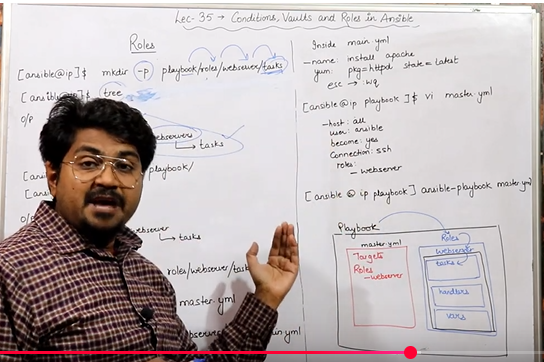 Lec-35 → Conditions, Vaults and Roles in Ansible
Roles
[ansible@ip]$ mkdir -p playbook/roles/webserver/tasks
[ansible@ip]$ tree
O/P
webservers
→ tasks
playbook/
O/P
webserver
→ tasks
roles/webserver/task
master.yml
main.yml
Inside main.yml
-name: install apache
yum: pkg=httpd state=latest
esc → :wq
[ansible@ip playbook]$ vi master.yml
-host: all
user: ansible
become: yes
Connection: ssh
roles:
- webserver
[ansible @ ip playbook] ansible-playbook master.yml
Playbook
master.yml
Targets
Roles
-webserver
Roles
Webserver
tasks
handlers
vars